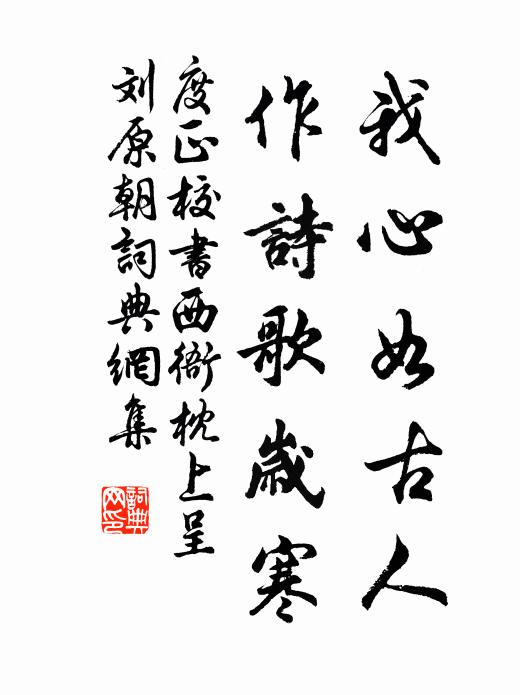 我心如古人
作詩歌歲寒
度正校書西衙枕上呈
刘原朝詞典網集
詞典
网印